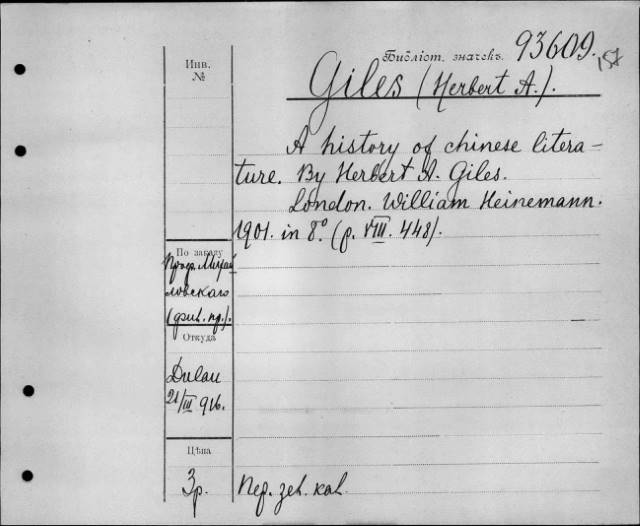 Инв.
№
Библіот. значекъ. 93609.
Giles (Herbert A.).
A history of chinese litera-
ture. By Herbert A. Giles.
London. William Heinemann.
1901. in 8°. (p. VIII. 448).
По заказу
Проф. Михай
ловскаго
Откуда
Dulau
21/III 916.
Цѣна
3р.
Пер.